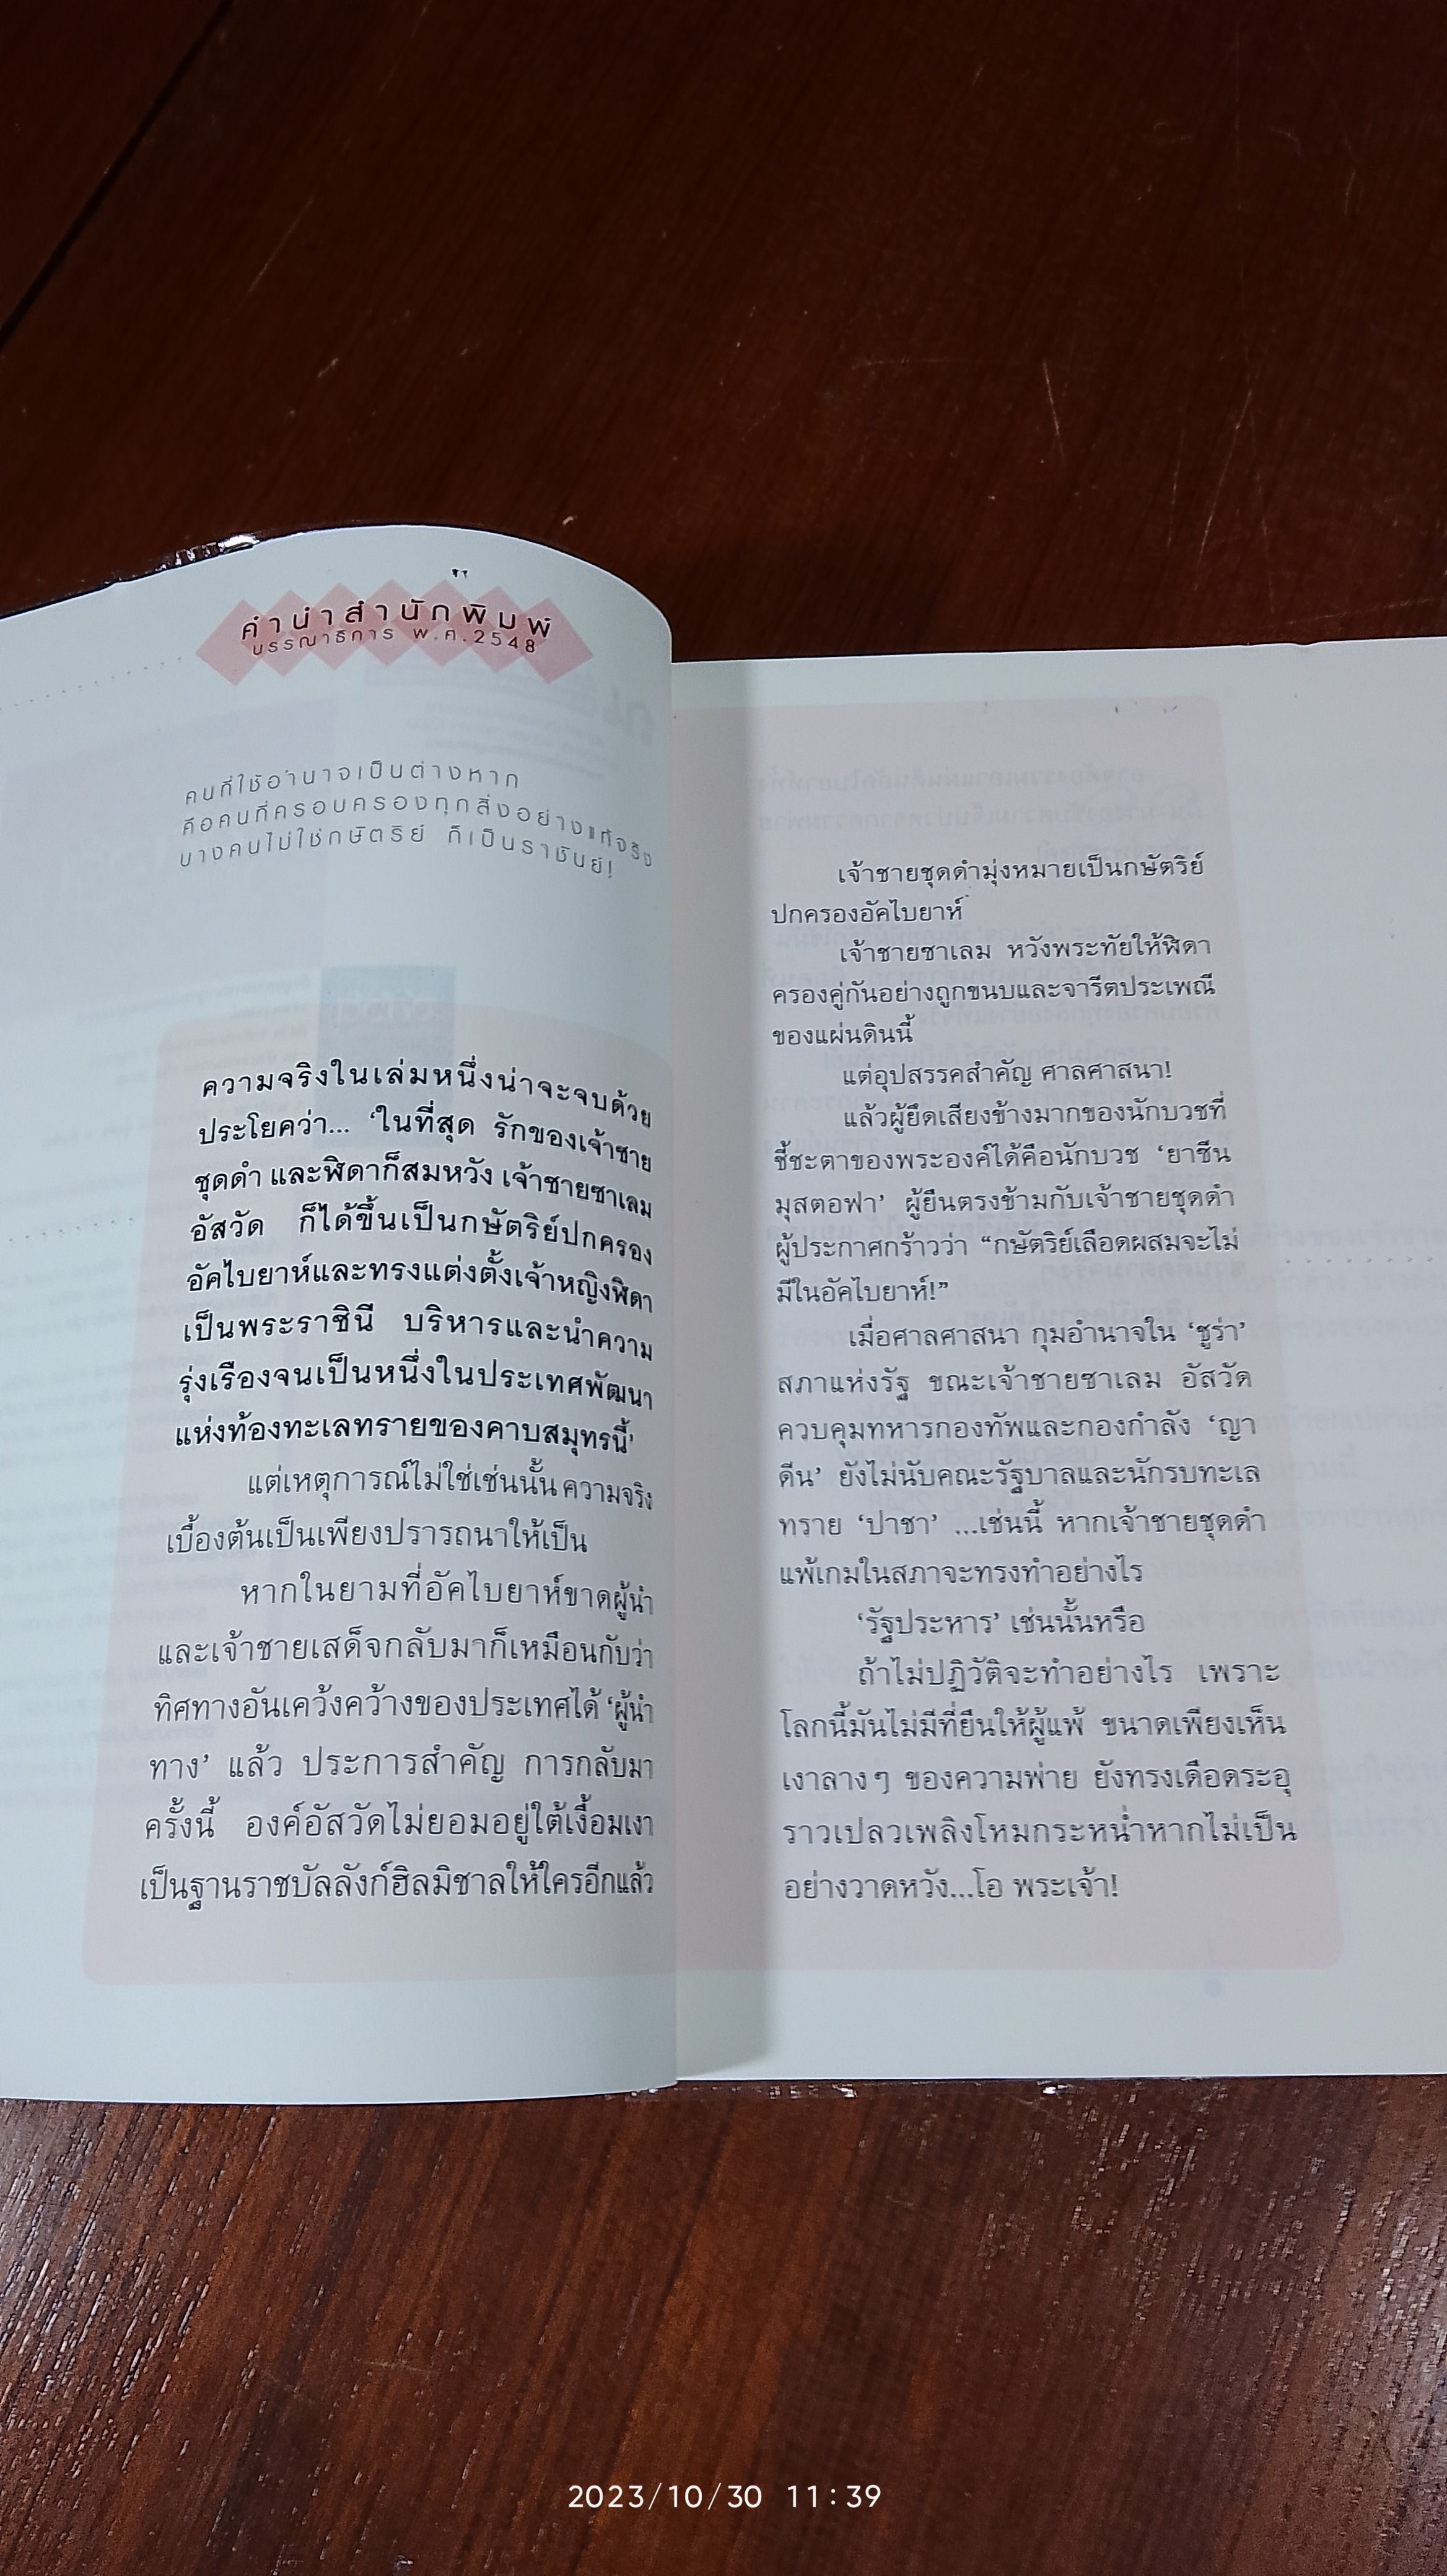 คำนำสำนักพิมพ์
บรรณาธิการ พ.ศ.2548
คนที่ใช้อำนาจเป็นต่างหาก
คือคนที่ครอบครองทุกสิ่งอย่างแท้จริง
บางคนไม่ใช่กษัตริย์ ก็เป็นราชันย์!
ความจริงในเล่มหนึ่งน่าจะจบด้วย
ประโยคว่า... ‘ในที่สุด รักของเจ้าชาย
ชุดดำ และฬิดาก็สมหวัง เจ้าชายซาเลม
อัสวัด ก็ได้ขึ้นเป็นกษัตริย์ปกครอง
อัคไบยาห์และทรงแต่งตั้งเจ้าหญิงฬิดา
เป็นพระราชินี บริหารและนำความ
รุ่งเรืองจนเป็นหนึ่งในประเทศพัฒนา
แห่งท้องทะเลทรายของคาบสมุทรนี้’
แต่เหตุการณ์ไม่ใช่เช่นนั้น ความจริง
เบื้องต้นเป็นเพียงปรารถนาให้เป็น
หากในยามที่อัคไบยาห์ขาดผู้นำ
และเจ้าชายเสด็จกลับมาก็เหมือนกับว่า
ทิศทางอันเคว้งคว้างของประเทศได้ ‘ผู้นำ
ทาง’ แล้ว ประการสำคัญ การกลับมา
ครั้งนี้ องค์อัสวัดไม่ยอมอยู่ใต้เงื้อมเงา
เป็นฐานราชบัลลังก์ฮิลมิชาลให้ใครอีกแล้ว
เจ้าชายชุดดำมุ่งหมายเป็นกษัตริย์
ปกครองอัคไบยาห์
เจ้าชายซาเลม หวังพระทัยให้ฬิดา
ครองคู่กันอย่างถูกขนบและจารีตประเพณี
ของแผ่นดินนี้
แต่อุปสรรคสำคัญ ศาลศาสนา!
แล้วผู้ยึดเสียงข้างมากของนักบวชที่
ชี้ชะตาของพระองค์ได้คือนักบวช ‘ยาซีน
มุสตอฟา’ ผู้ยืนตรงข้ามกับเจ้าชายชุดดำ
ผู้ประกาศกร้าวว่า “กษัตริย์เลือดผสมจะไม่
มีในอัคไบยาห์!”
เมื่อศาลศาสนา กุมอำนาจใน ‘ชูร่า’
สภาแห่งรัฐ ขณะเจ้าชายซาเลม อัสวัด
ควบคุมทหารกองทัพและกองกำลัง ‘ญา
ดีน’ ยังไม่นับคณะรัฐบาลและนักรบทะเล
ทราย ‘ปาชา’ ...เช่นนี้ หากเจ้าชายชุดดำ
แพ้เกมในสภาจะทรงทำอย่างไร
‘รัฐประหาร’ เช่นนั้นหรือ
ถ้าไม่ปฏิวัติจะทำอย่างไร เพราะ
โลกนี้มันไม่มีที่ยืนให้ผู้แพ้ ขนาดเพียงเห็น
เงาลางๆ ของความพ่าย ยังทรงเดือดระอุ
ราวเปลวเพลิงโหมกระหน่ำหากไม่เป็น
อย่างวาดหวัง...โอ พระเจ้า!
2023/10/30 11:39